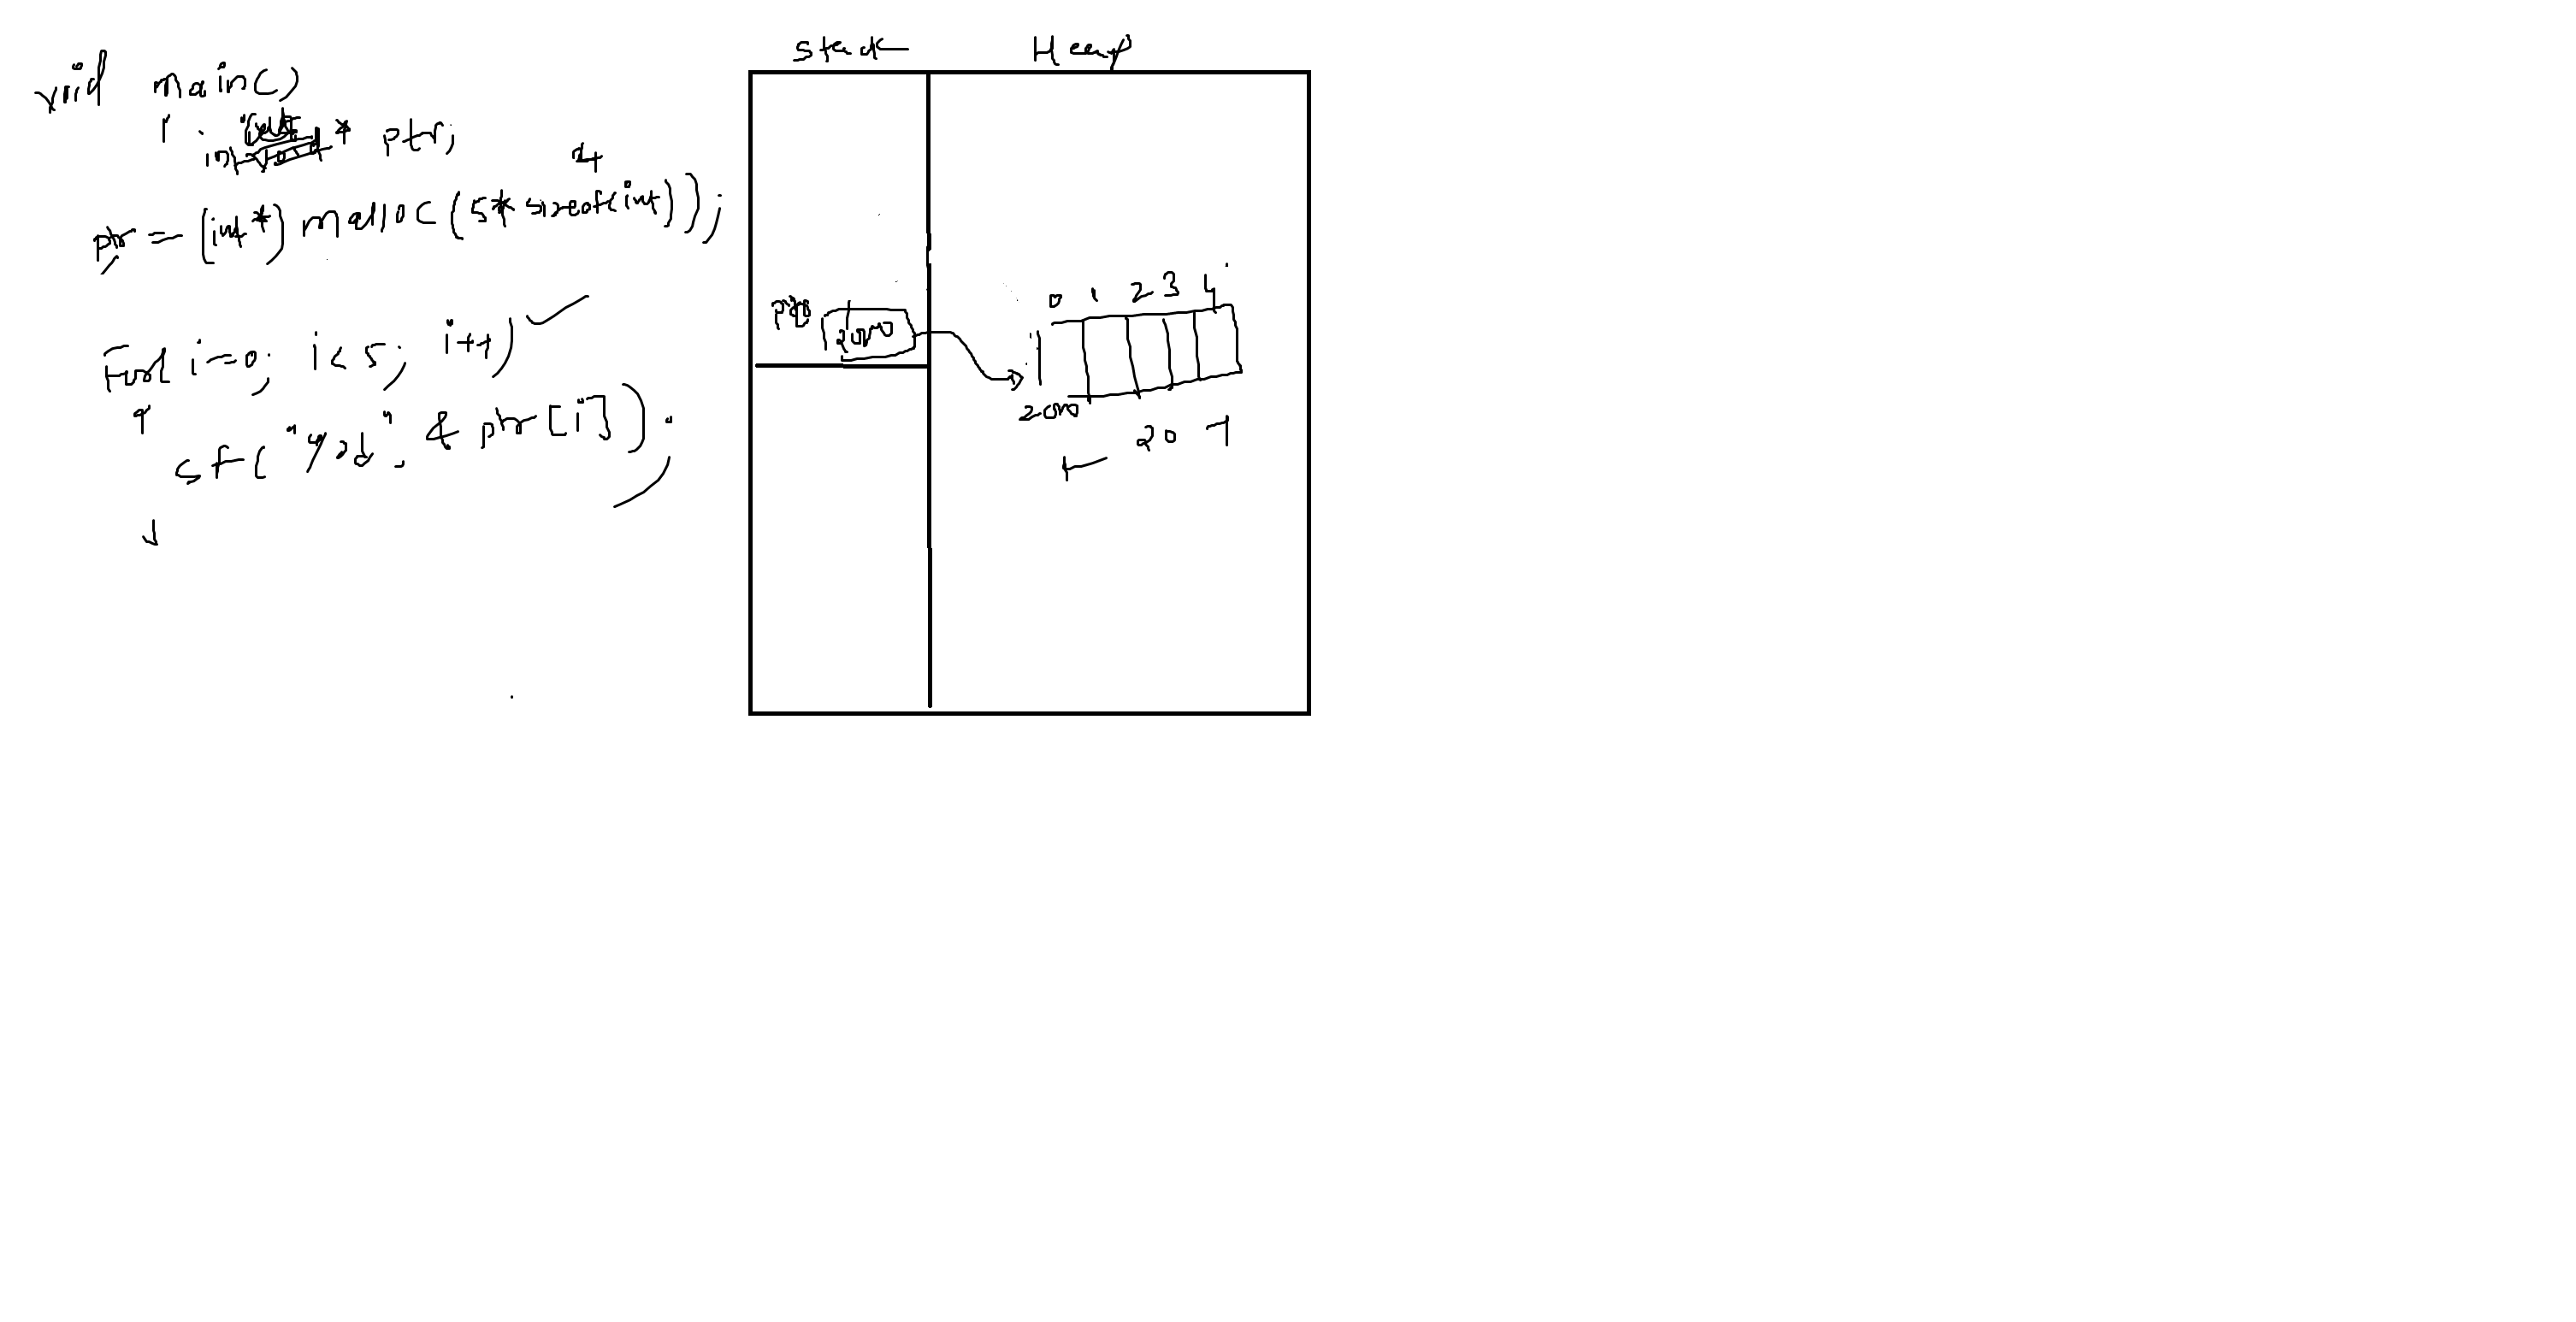 void main()
int * ptr;
4
ptr = (int*) malloc(5* sizeof(int));
For( i=0; i< 5; i++)
sf( "%d", & ptr[i]);
Stack Heap
ptr 2000
0 1 2 3 4
2000
20